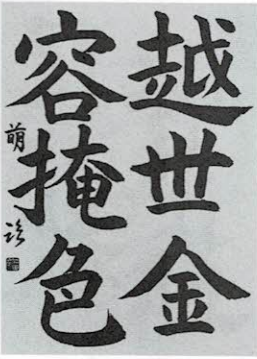 越世金
容掩色
萌